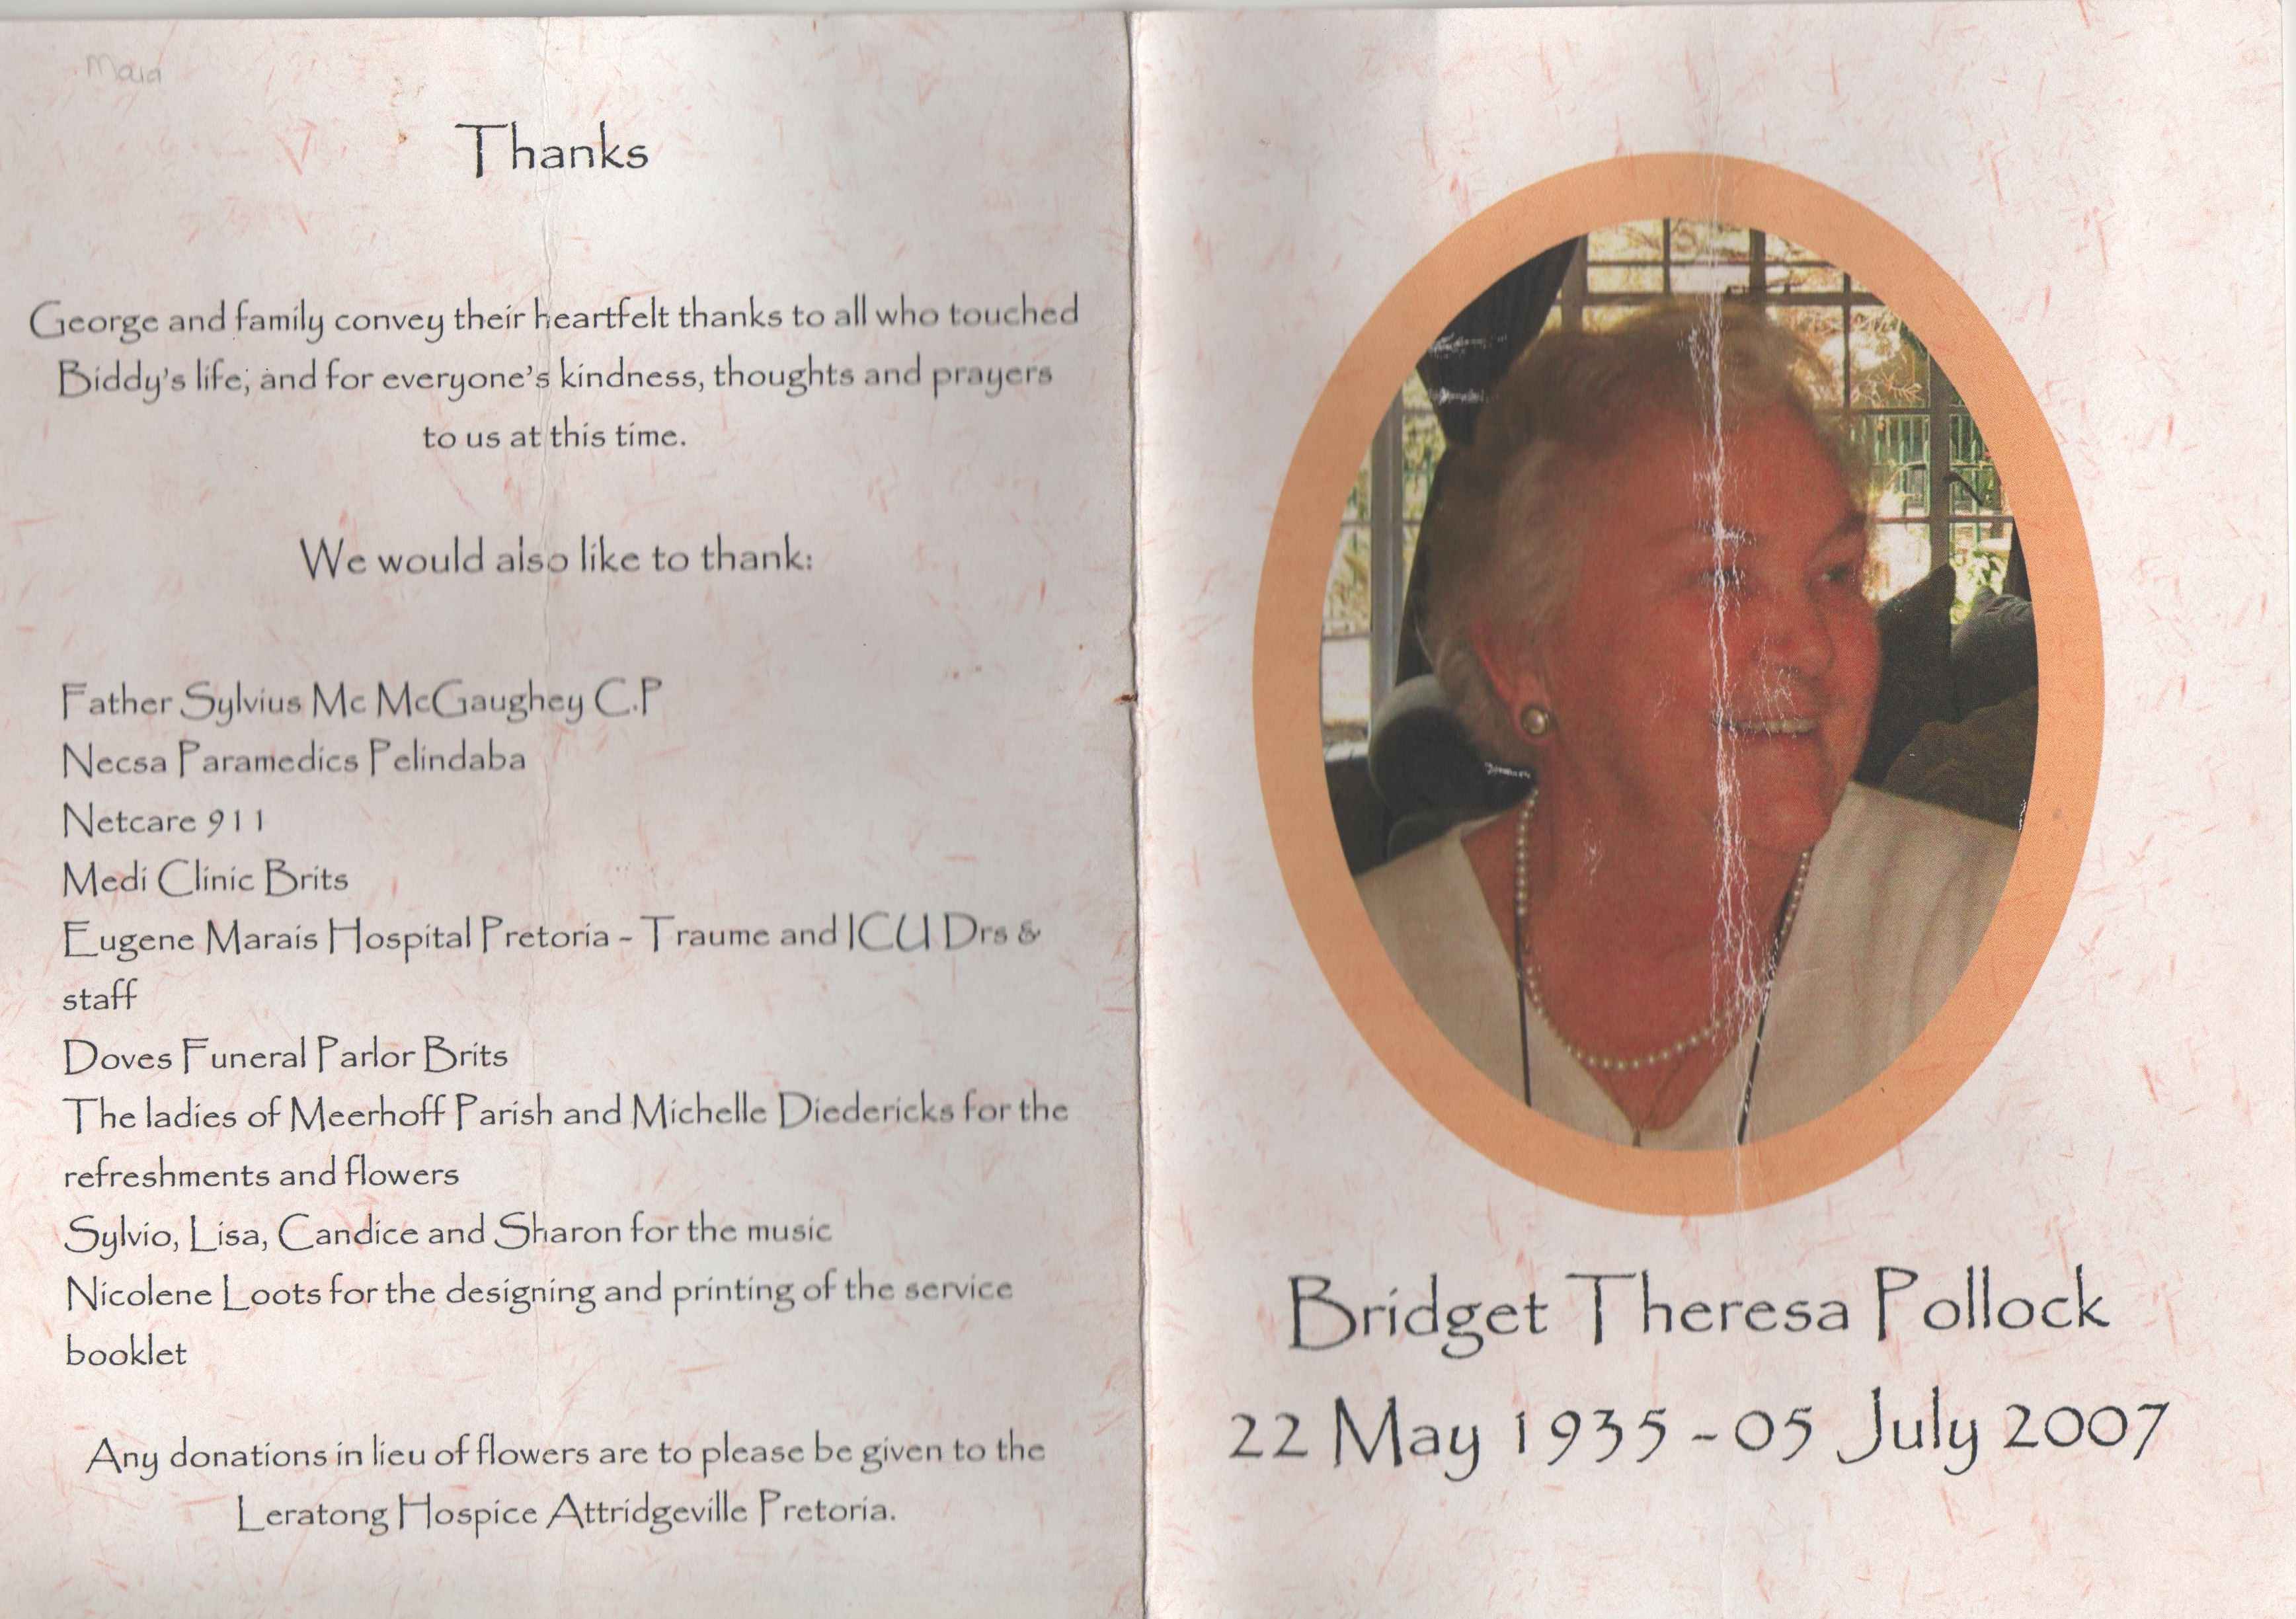 Thanks
George and family convey their heartfelt thanks to all who touched
Biddy's life, and for everyone's kindness, thoughts and prayers
to us at this time.
We would also like to thank:
Father Sylvius Mc McGaughey C.P
Necsa Paramedics Pelindaba
Netcare 911
Medi Clinic Brits
Eugene Marais Hospital Pretoria - Traume and ICU Drs &
staff
Doves Funeral Parlor Brits
The ladies of Meerhoff Parish and Michelle Diedericks for the
refreshments and flowers
Sylvio, Lisa, Candice and Sharon for the music
Nicolene Loots for the designing and printing of the service
booklet
Any donations in lieu of flowers are to please be given to the
Leratong Hospice Attridgeville Pretoria.
Bridget Theresa Pollock
22 May 1935 - 05 July 2007